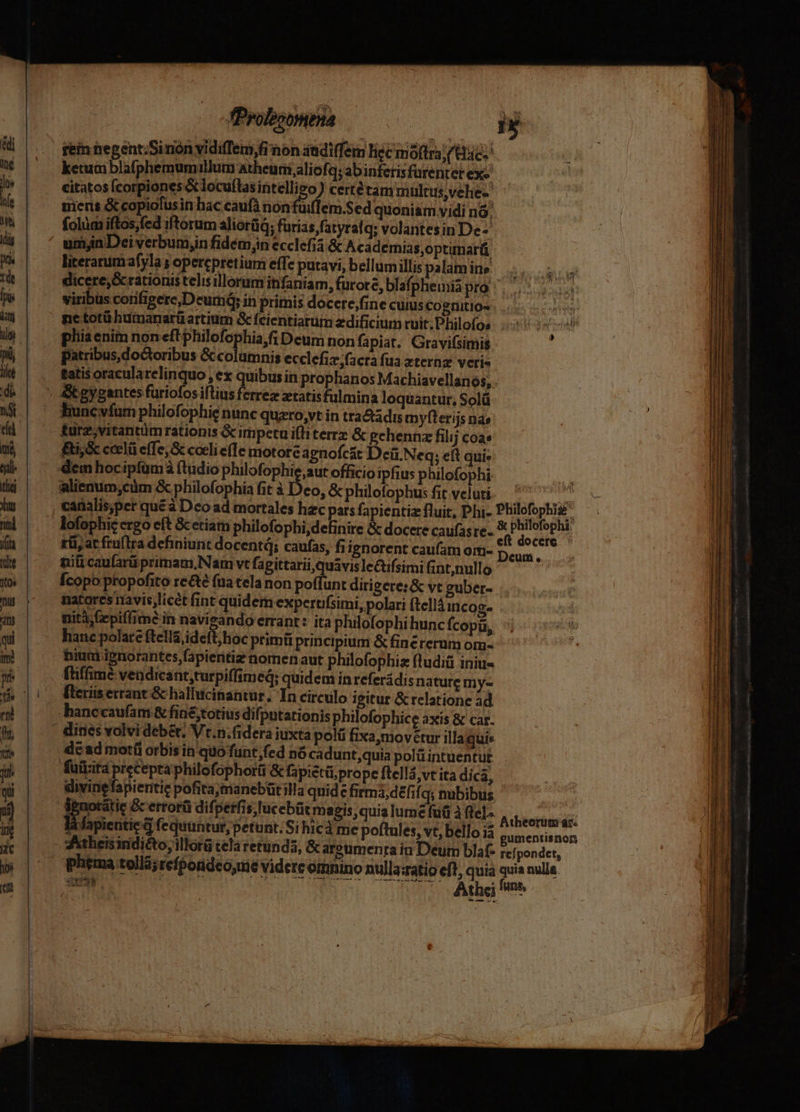 Prolegomena 15
rem negent. Si non vidissem, si non audissem hęc mōstra, (Hac-
kerum blasphemum illum atheum, aliosq; ab inferis furenter ex-
citatos scorpiones & locustas intelligo) certè tam multus, vehe-
mens & copiosus in hac causâ non fuissem. Sed quoniam vidi nō
solùm istos, sed istorum aliorūq; furias, satyrasq; volantes in De-
um, in Dei verbum, in fidem, in ecclesiā & Academias, optimarū
literarum asyla; operępretium esse putavi, bellum illis palam in-
dicere, & rationis telis illorum insaniam, furorē, blasphemiā pro
viribus configere, Deumq; in primis docere, sine cuius cognitio-
ne totū humanarū artium & scientiarum ædificium ruit. Philoso-
phia enim non est philosophia, si Deum non sapiat. Gravissimis
patribus, doctoribus & columnis ecclesiæ, sacra sua æternæ veri-
tatis oracula relinquo, ex quibus in prophanos Machiavellanos,
& gygantes furiosos istius ferreæ ætatis fulmina loquantur. Solū
hunc vsum philosophię nunc quæro, vt in tractādis mysterijs na-
turæ, vitantùm rationis & impetu isti terræ & gehennæ filij coa-
cti, & cœlū esse, & cœli esse motorē agnoscāt Deū. Neq; est qui-
dem hoc ipsum à studio philosophię, aut officio ipsius philosophi
alienum, cùm & philosophia sit à Deo, & philosophus sit veluti
canalis, per quē à Deo ad mortales hæc pars sapientiæ fluit. Phi-
losophię ergo est & etiam philosophi, definire & docere causas re-
rū, at frustra definiunt docentq; causas, si ignorent causam om-
niū causarū primam. Nam vt sagittarii, quāvis lectissimi sint, nullo
scopo proposito rectè sua tela non possunt dirigere: & vt guber-
natores navis, licèt sint quidem expertissimi, polari stellâ incog-
nitâ, sæpissimè in navigando errant: ita philosophi hunc scopū,
hanc polarē stellā, id est, hoc primū principium & finē rerum om-
nium ignorantes, sapientiæ nomen aut philosophiæ studiū iniu-
stissimè vendicant, turpissimeq; quidem in referādis naturę my-
steriis errant & hallucinantur. In circulo igitur & relatione ad
hanc causam & finē, totius disputationis philosophicę axis & car-
dines volvi debēt. Vt. n. sidera iuxta polū fixa, movētur illa quis
dē ad motū orbis in quo sunt, sed nō cadunt, quia polū intuentur
suū: ita pręcepta philosophorū & sapiētū, prope stellā, vt ita dicā,
divinę sapientię posita, manebūt illa quidē firma, dēsisq; nubibus
ignorātię & errorū dispersis, lucebūt magis, quia lumē suū à stel-
lâ sapientię q̄ sequuntur, petunt. Si hic à me postules, vt, bello iā
Atheis indicto, illorū tela retundā, & argumenta in Deum blas-
phema tollā; respondeo, me videre omnino nulla: ratio est, quia
Athei
Philosophiæ
& philosophi
est docere
Deum.
Atheorum ar-
gumentis non
respondet,
quia nulla
sunt.